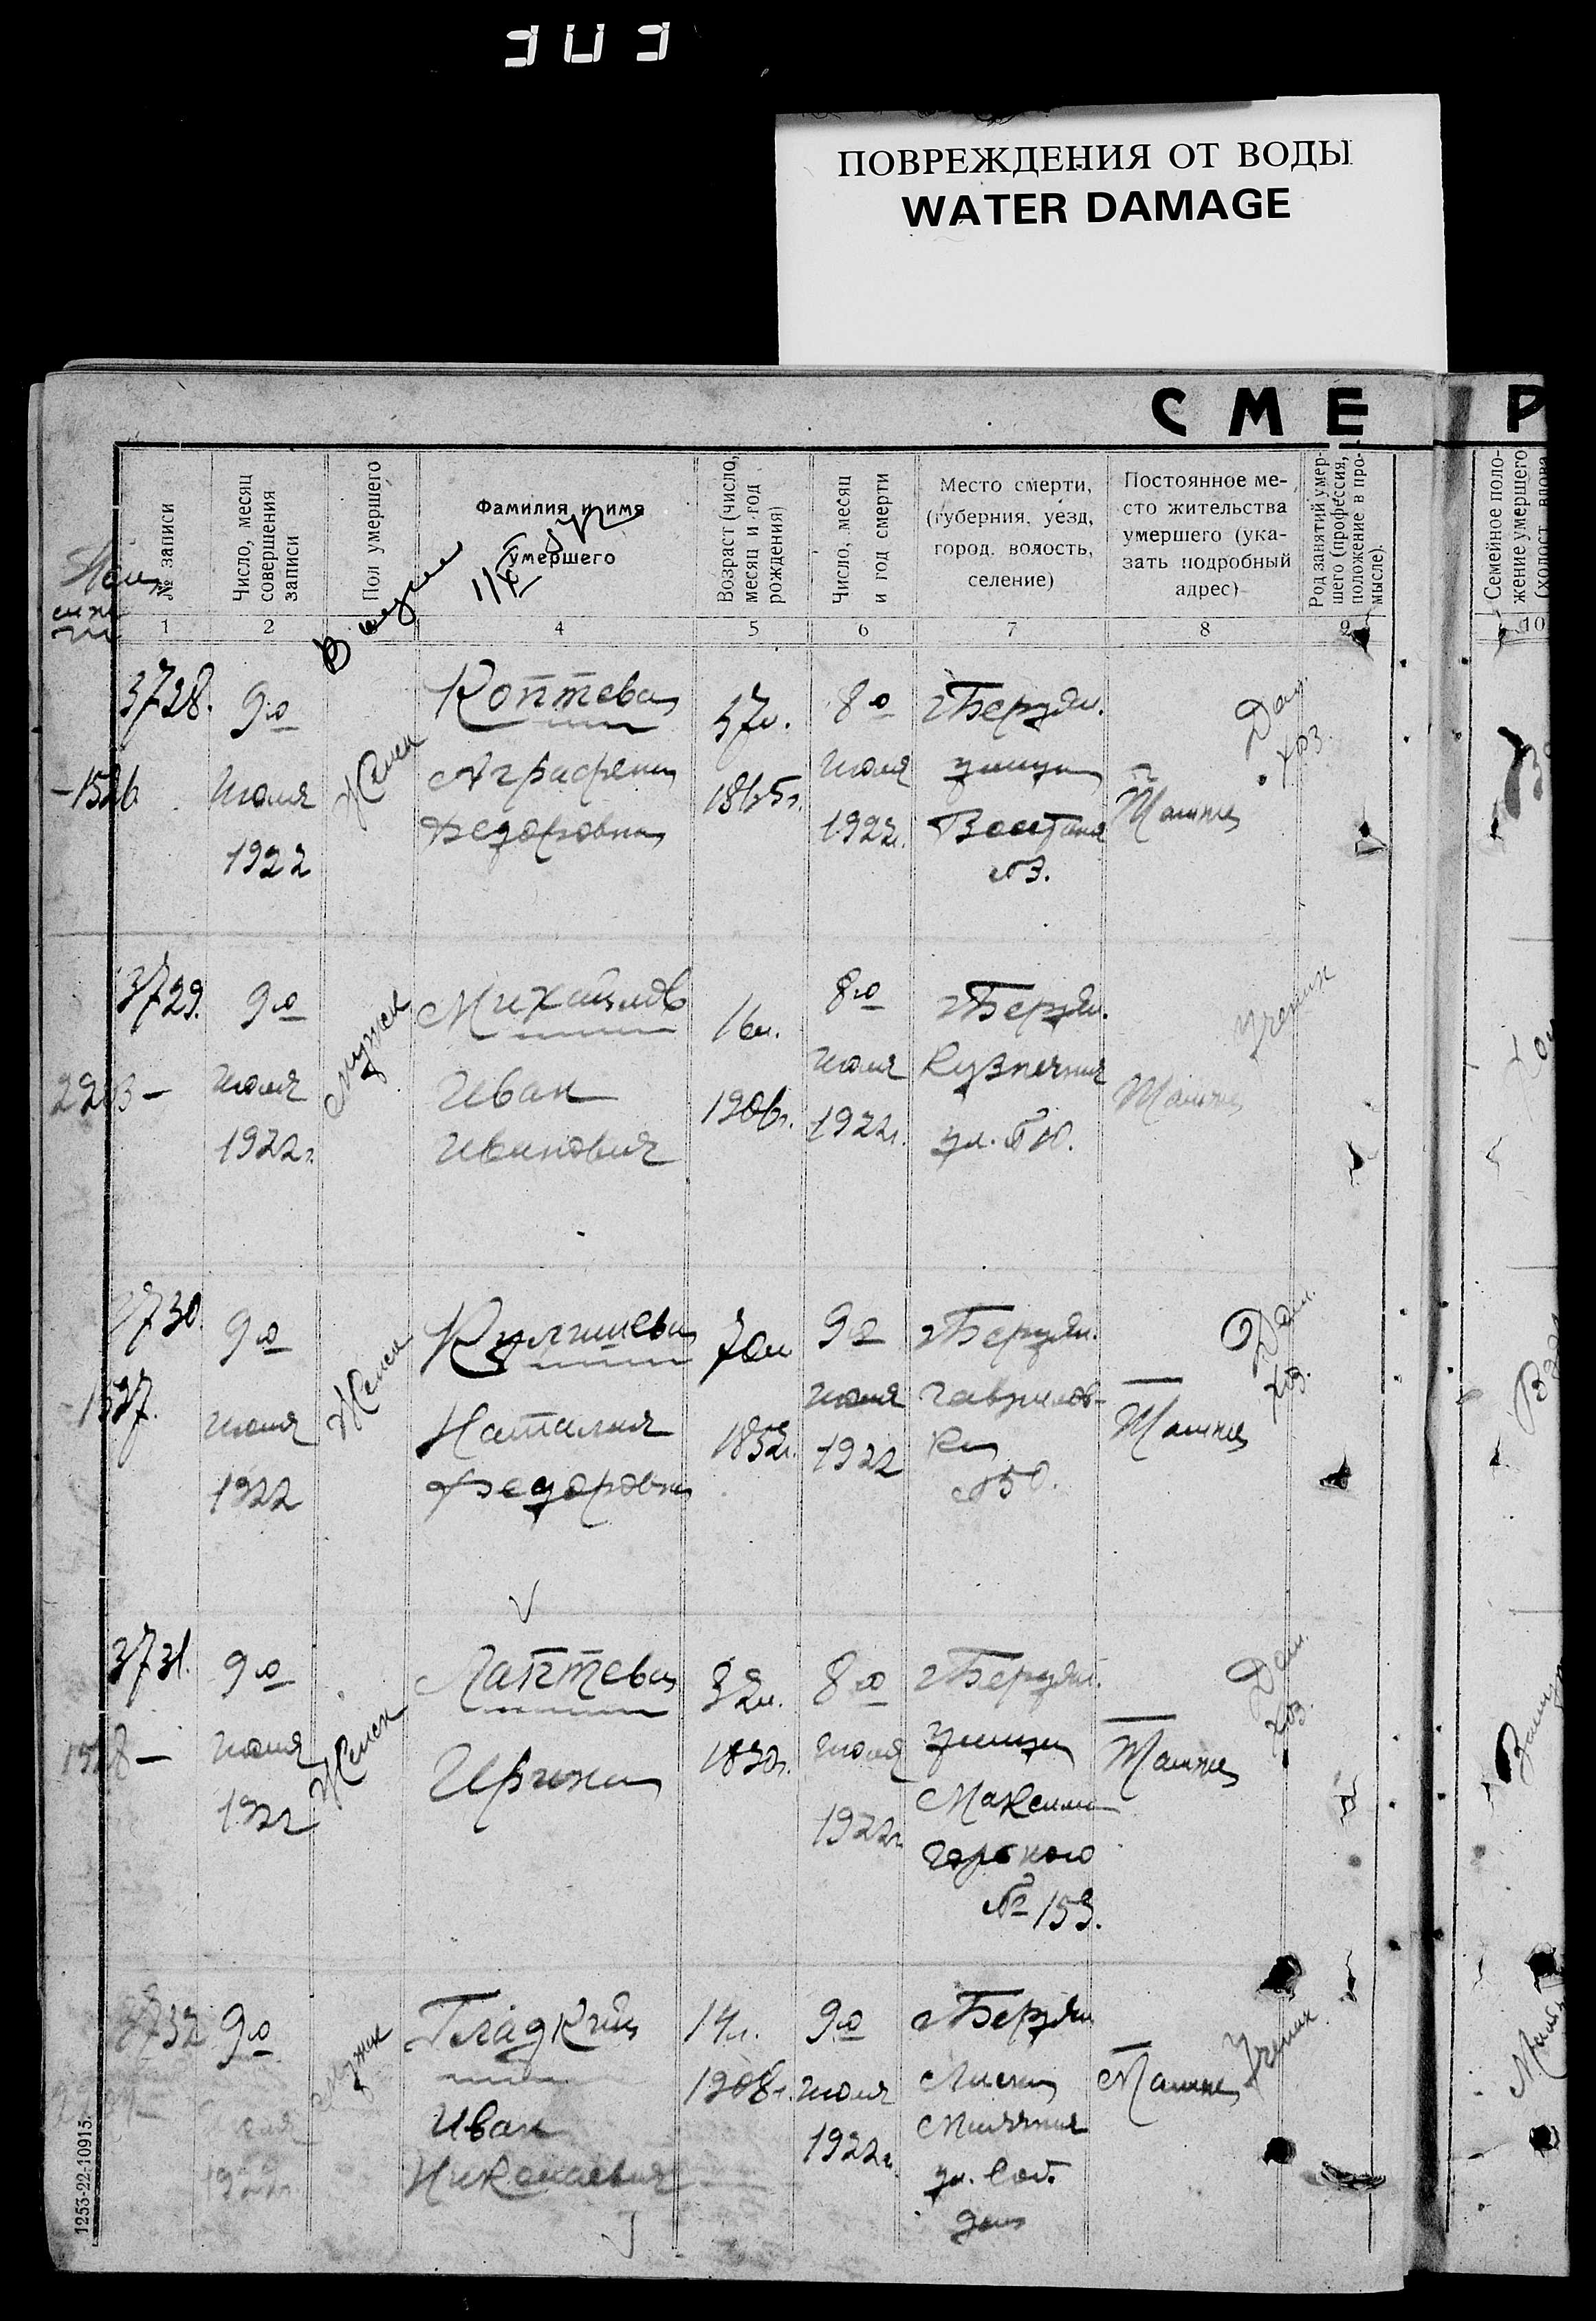 303
ПОВРЕЖДЕНИЯ ОТ ВОДЫ
WATER DAMAGE
СМЕ
Р
№ записи
Число, месяц
совершения
записи
Пол умершего
Фамилия и имя
умершего
Возраст (число,
месяц и год
рождения)
Число, месяц
и год смерти
Место смерти,
(губерния, уезд,
город, волость,
селение)
Постоянное ме-
сто жительства
умершего (ука-
зать подробный
адрес)
Род занятий умер-
шего (профессия,
положение в про-
мысле).
Семейное поло-
жение умершего
(холост, вдова
1 2 4 5 6 7 8 9 10
3728.
1526
9го
июля
1922
Женск
Коптева
Аграфена
Федоровна
57л.
1865г.
8го
июля
1922г.
г Бердян.
улица
№3.
Там же
Дом.
хоз.
3729.
9го
июля
1922г.
Мужск
Михайлов
Иван
Иванович
16л.
1906г.
8го
июля
1922г.
г Бердян.
Кузнечная
ул. №10.
Там же
Ученик
3730.
1527.
9го
июля
1922
Женск
Наталия
Федоровна
70л
1852г.
9го
июля
1922
г Бердян.
Гаврилов-
ка
№50.
Там же
Дом.
хоз.
3731.
1528 —
9го
июля
1922
Женск
Лаптева
Ирина
8го
июля
1922г
г Бердян.
улица
Максима
Горького
№ 153.
Там же
Дом.
хоз.
3732
9го
июля
1922г.
Мужск
Гладкий
Иван
Николаевич
14л.
1908г.
9го
июля
1922г.
г Бердян
Лиски
ул.
дом
Там же
Ученик
1253-22-10915.